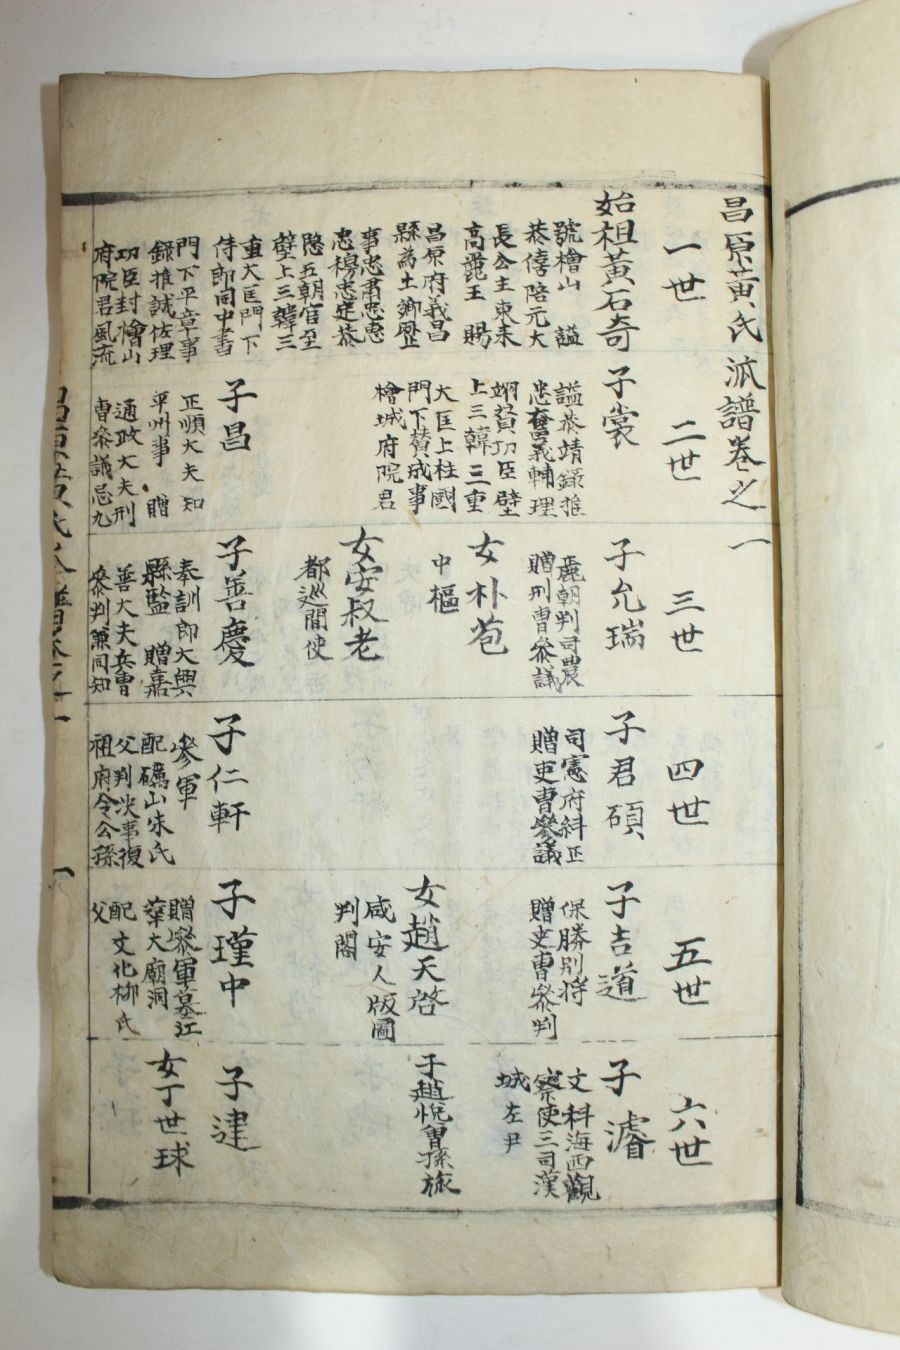 昌原黃氏派譜卷之一
一世
始祖黃石奇
號檜山 謚
恭僖陪元大
長公主東來
高麗王 賜
昌原府義昌
縣為土鄉歷
事忠肅忠惠
忠穆忠定恭
愍五朝官至
壁上三韓三
重大匡門下
侍郎同中書
門下平章事
錄推誠佐理
功臣封檜山
府院君風流
二世
子裳
謚恭靖錄推
忠奮義輔理
翊贊功臣壁
上三韓三重
大匡上柱國
門下贊成事
檜城府院君
子昌
正順大夫知
平州事 贈
通政大夫刑
曹參議忌九
三世
子允瑞
麗朝判司農
贈刑曹參議
女朴苞
中樞
女安叔老
都巡問使
子善慶
奉訓郎大興
縣監 贈嘉
善大夫兵曹
參判兼同知
四世
子君碩
司憲府糾正
贈吏曹參議
子仁軒
參軍
配礪山宋氏
父判決事復
祖府令公孫
五世
子吉道
保勝別將
贈吏曹參判
女趙天啓
咸安人版圖
判閣
子瑾中
贈參軍墓江
華大廟洞
配文化柳氏
父
六世
子濬
文科海西觀
察使三司漢
城左尹
子趙悅曾孫旅
子建
女丁世球